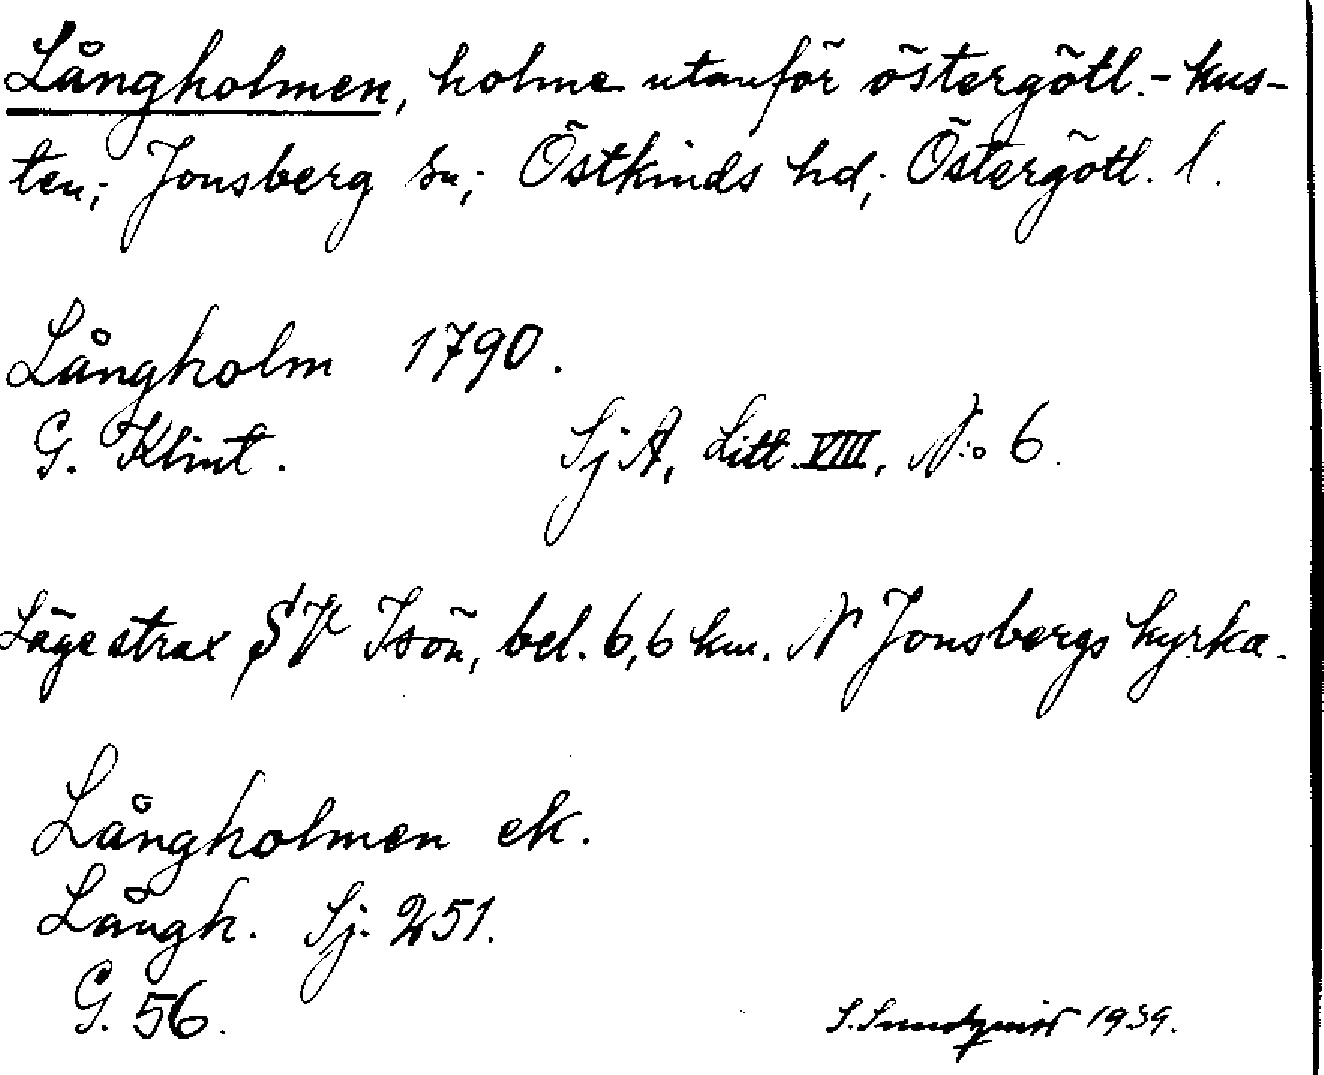 Långholmen, holme utanför östergötl.-kus-
ten; Jonsberg sn; Östkinds hd; Östergötl. l.
Långholm 1790.
G. Klint. SjA, Litt. VIII, N:o 6.
Läge strax SV Isön, bel. 6,6 km. N Jonsbergs kyrka.
Långholmen ek.
Långh. Sj. 251.
G. 56.
S. Sundqvist 1939.